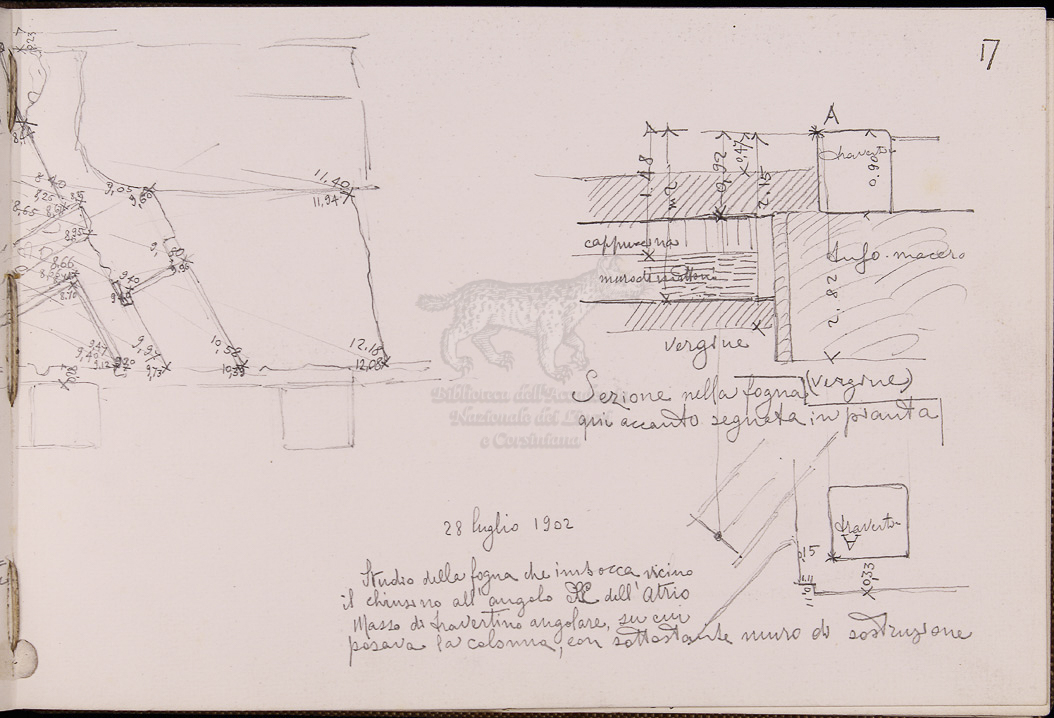 17
0,23
8,40
8,25
8,65
8,95
8,66
8,70
9,05
9,60
11,40
11,94
9,40
9,95
9,47
9,40
9,12
9,20
9,97
9,73
10,58
10,39
12,18
12,08
A
1.48
m 2
0,92
0,47
2.15
travert.
0.90
cappuccina
muro di mattoni
tufo macero
2.82
vergine
Sezione nella fogna (vergine)
qui accanto segnata in pianta
Biblioteca dell'Accademia
Nazionale dei Lincei
e Corsiniana
28 luglio 1902
Studio della fogna che imbocca vicino
il chiusino all'angolo SE dell'Atrio
Masso di travertino angolare, su cui
posava la colonna, con sottostante muro di sostruzione
travert.
A
0,15
0,33